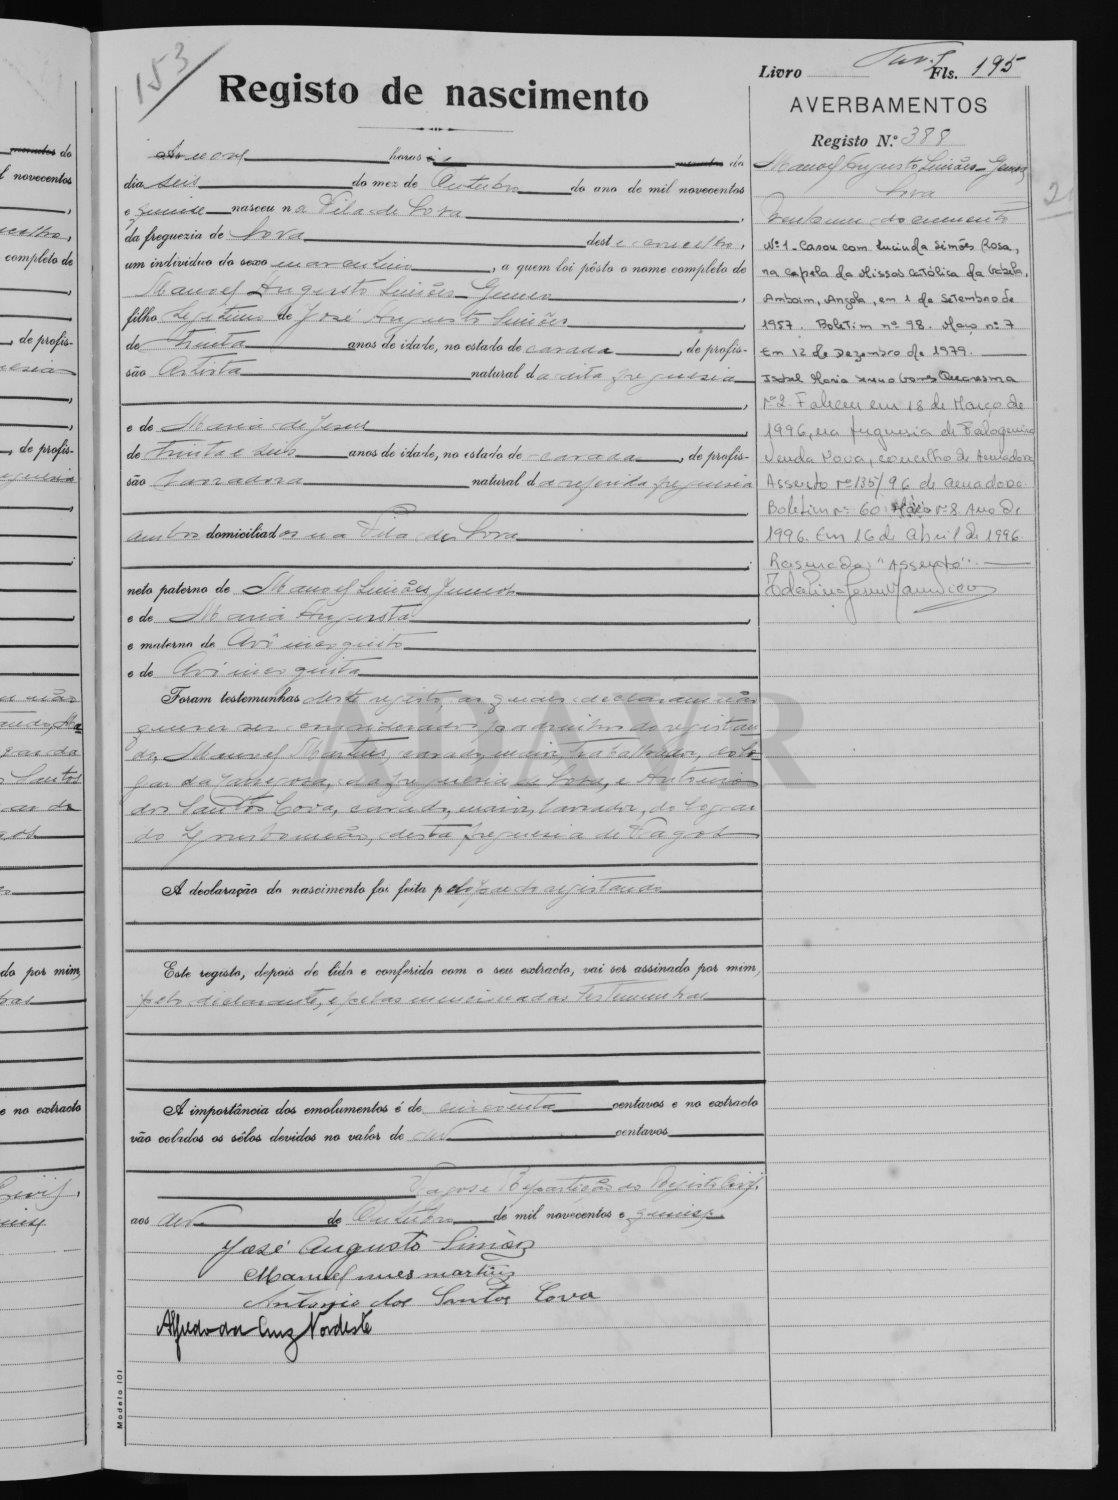 153
Livro Fls. 195
Registo de nascimento
AVERBAMENTOS
Registo N.º 388
Manoel Augusto Simões Junior
Sora
nenhum documento
Às nove horas do
dia seis do mez de Outubro do ano de mil novecentos
e quinze nasceu na Vila de Soza,
da freguezia de Soza deste concelho,
um individuo do sexo masculino, a quem foi pôsto o nome completo de
Manoel Augusto Simões Junior,
filho legitimo de José Augusto Simões,
de trinta anos de idade, no estado de casado, de profis-
são Artista natural da dita freguesia,
e de Maria de Jesus,
de trinta e seis anos de idade, no estado de casada, de profis-
são Lavradora natural da referida freguesia,
ambos domiciliados na Vila de Soza;
neto paterno de Manoel Simões Junior
e de Maria Augusta,
e materno de Avô incognito
e de Avó incognita
Foram testemunhas deste registo, as quais declararam não
querer ser considerados padrinhos do registan-
do, Manoel Martins, casado, maior, trabalhador, do lo-
gar da, da freguesia de Soza, e Antonio
dos Santos Cova, casado, maior, lavrador, do logar
do, desta freguesia de Vagos
A declaração do nascimento foi feita pelo pae do registando
Este registo, depois de lido e conferido com o seu extracto, vai ser assinado por mim,
pelo declarante, e pelas mencionadas testemunhas
A importância dos emolumentos é de cincoenta centavos e no extracto
vão colados os sêlos devidos no valor de dez centavos
Vagos e Repartição do Registo Civil,
aos dez de Outubro de mil novecentos e quinze
José Augusto Simões
Manuel nunes martins
Antonio dos Santos Cova
Alfredo da Cruz Nordeste
Modelo 101
Nº 1 - Casou com Lucinda Simões Rosa,
na capela da Missão Católica da Gabela,
Amboim, Angola, em 1 de Setembro de
1957. Boletim nº 98. Maço nº 7
Em 12 de Dezembro de 1979.
Isabel Maria Nuno Gomes Quaresma
Nº 2. Faleceu em 18 de Março de
1996, na freguesia de Falagueira
Venda Nova, concelho de Amadora
Assento nº 135/96 de Amadora.
Boletim nº 60 Maço nº 8 Ano de
1996. Em 16 de Abril de 1996.
Rasurado: "Assento".
AVR